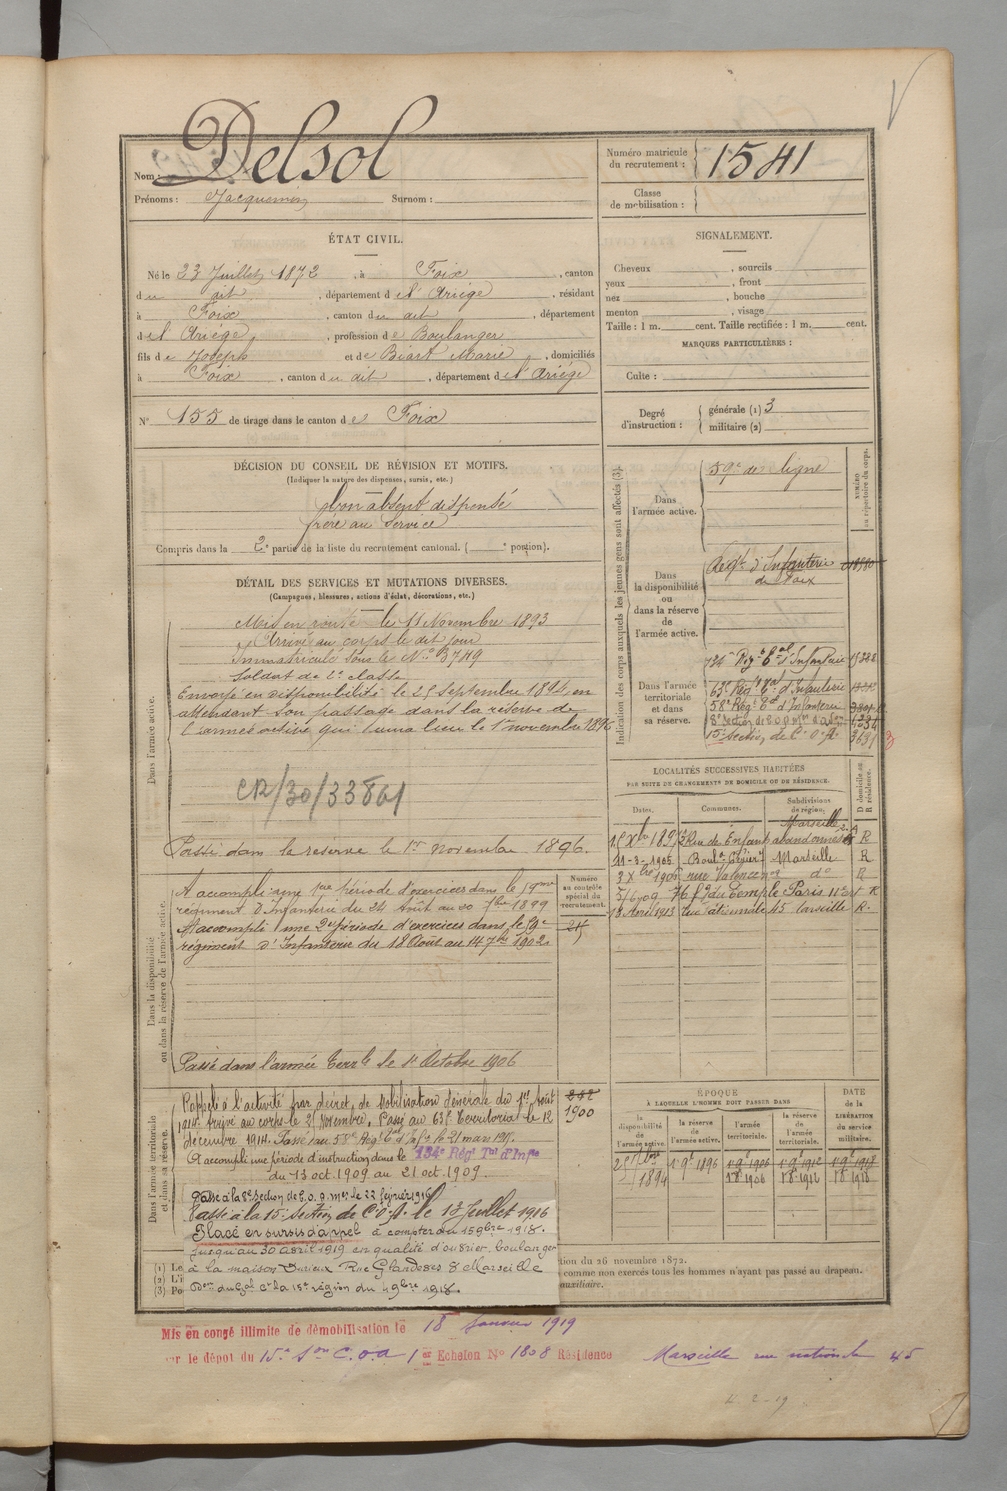 Delsol
Nom :
Prénoms : Jacquemin Surnom :
Numéro matricule du recrutement : 1541
Classe de mobilisation :
ÉTAT CIVIL.
Né le 23 Juillet 1872, à Foix, canton
du dit, département de l'Ariège, résidant
à Foix, canton du dit, département
de l'Ariège, profession de Boulanger
fils de Joseph et de Biart Marie, domiciliés
à Foix, canton du dit, département de l'Ariège
N° 155 de tirage dans le canton de Foix
SIGNALEMENT.
Cheveux , sourcils
yeux , front
nez , bouche
menton , visage
Taille : 1 m. cent. Taille rectifiée : 1 m. cent.
MARQUES PARTICULIÈRES :
Culte :
Degré d'instruction : générale (1) 3
militaire (2)
DÉCISION DU CONSEIL DE RÉVISION ET MOTIFS.
(Indiquer la nature des dispenses, sursis, etc.)
bon absent dispensé
frère au service
Compris dans la 2e partie de la liste du recrutement cantonal. ( e portion).
DÉTAIL DES SERVICES ET MUTATIONS DIVERSES.
(Campagnes, blessures, actions d'éclat, décorations, etc.)
Dans l'armée active.
Mis en route le 11 Novembre 1893
Arrivé au corps le dit jour
Immatriculé sous le No 3749
Soldat de 2e classe
Envoyé en disponibilité le 25 septembre 1894, en
attendant son passage dans la réserve de
l'armée active qui aura lieu le 1er novembre 1896
CR/30/33861
Passé dans la réserve le 1er novembre 1896.
Dans la disponibilité ou dans la réserve de l'armée active.
A accompli une 1ere période d'exercices dans le
régiment d'Infanterie du 24 Août au 20 7bre 1899
A accompli une 2e période d'exercices dans le 59e
régiment d'Infanterie du 18 Août au 14 7bre 1902
Passé dans l'armée terrle le 1er Octobre 1906
Numéro au contrôle spécial du recrutement.
Dans l'armée territoriale et dans sa réserve.
Rappelé à l'activité par décret de Mobilisation Générale du 1er Août
1914. Arrivé au corps le 2 Novembre. Passé au 63e Territorial le 12
décembre 1914. Passé au 58e Régt Tal d'Infie le 21 mars 1915.
A accompli une période d'instruction dans le 134e Régt Tal d'Infie
du 13 oct 1909 au 21 oct. 1909.
1900
Passé à la 8e Section de C. O. A. le 22 février 1916
Passé à la 15e section de C.O.A. le 13 Juillet 1916
Placé en sursis d'appel à compter du 15 9bre 1918.
jusqu'au 30 avril 1919 en qualité d'ouvrier boulanger
à la maison Rue Glandeves 8 Marseille
Don du Gal Ct la 15e région du 4 9bre 1918.
Indication des corps auxquels les jeunes gens sont affectés (3).
NUMÉRO au répertoire du corps.
Dans l'armée active.
59e de ligne
Dans la disponibilité ou dans la réserve de l'armée active.
Régt d'Infanterie
de Foix
Dans l'armée territoriale et dans sa réserve.
134e Régt Tal d'Infanterie
63e Régt Tal d'Infanterie
58e Régt Tal d'Infanterie
8e Section de C.O.A. 1234
15e section de C.O.A. 3631
LOCALITÉS SUCCESSIVES HABITÉES
PAR SUITE DE CHANGEMENTS DE DOMICILE OU DE RÉSIDENCE.
D domicile ou R résidence.
Dates. Communes. Subdivisions de région.
Marseille
Rue des Enfants abandonnés R
11-3-1905 Marseille R
3 Xbre 1905 rue Valence do R
5/6/09 76 f g du Temple Paris 11e R
13 Avril 1913 rue nationale 45 Marseille R.
ÉPOQUE
À LAQUELLE L'HOMME DOIT PASSER DANS
DATE DE LA LIBÉRATION du service militaire.
la disponibilité de l'armée active.
la réserve de l'armée active.
l'armée territoriale.
la réserve de l'armée territoriale.
25 7bre 1894
1er 9e 1896
1er 9e 1906
1er 9e 1912
1er 9e 1918
1 8e 1906
1 8e 1912
1 8e 1918
(1) Le
(2) L'i
(3) Po
tion du 26 novembre 1872.
comme non exercés tous les hommes n'ayant pas passé au drapeau.
auxiliaire.
Mis en congé illimité de démobilisation le 18 Janvier 1919
par le dépôt du 15e Son C.O.A 1er Echelon No 1808 Résidence Marseille rue nationale 45
4-2-19